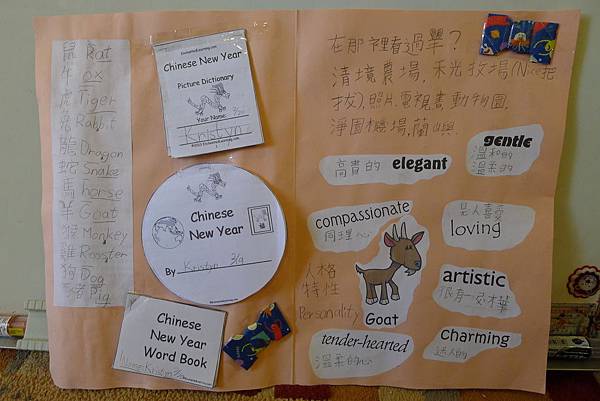 鼠 Rat
牛 ox
虎 Tiger
兔 Rabbit
龍 Dragon
蛇 Snake
馬 horse
羊 Goat
猴 Monkey
雞 Rooster
狗 Dog
豬 Pig
EnchantedLearning.com
Chinese New Year
Picture Dictionary
Your Name:
Kristyn
Chinese
New Year
By Kristyn 2/9
Chinese
New Year
Word Book
Name: Kristyn
在那裡看過羊？
清境農場,禾光牧場(Nice
拔).照片.電視.書.動物園.
蘭山嶼.
高貴的 elegant
gentle
溫和的
溫柔的
compassionate
同理心
見人喜愛
loving
人格
特性
Personality
Goat
artistic
很有
tender-hearted
溫柔的心
Charming
迷人的